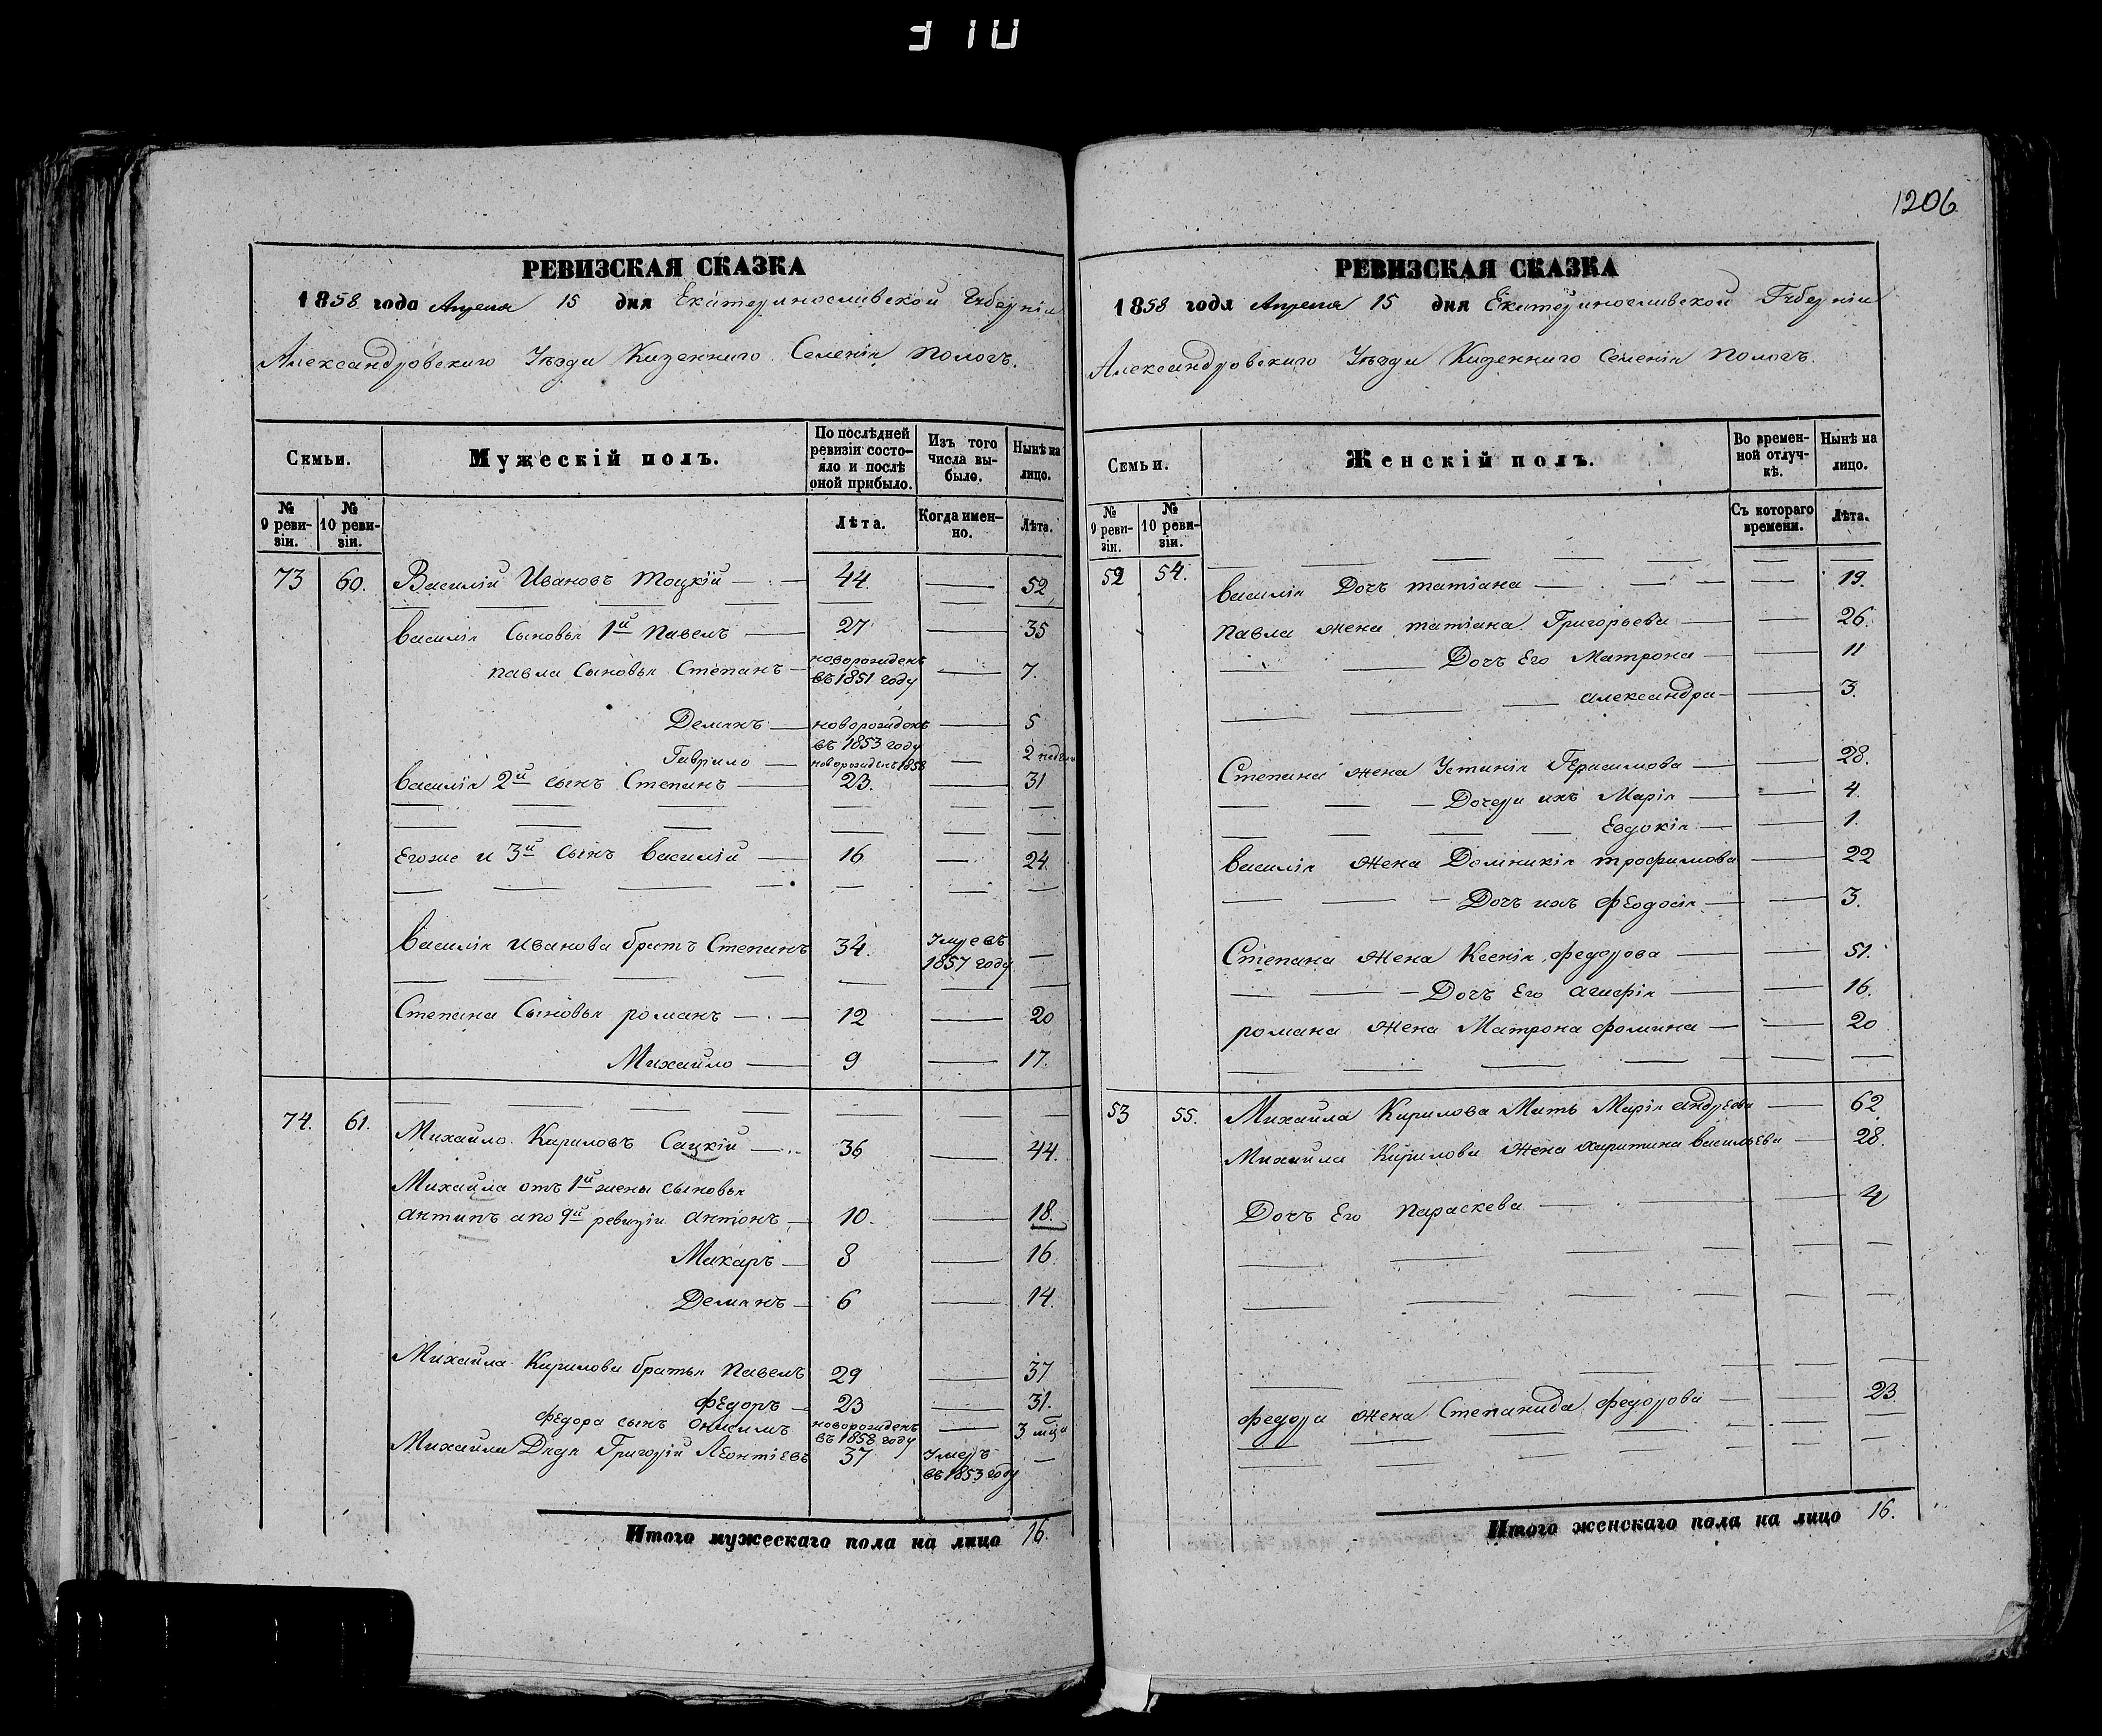 310
РЕВИЗСКАЯ СКАЗКА
1858 года Апреля 15 дня Екатеринославской Губерніи
Александровскаго Уезда Казеннаго Селенія Пологъ.
Семьи.
Мужескій полъ.
По послѣдней ревизіи состояло и послѣ оной прибыло.
Изъ того числа выбыло.
Нынѣ на лицо.
№ 9 ревизіи.
№ 10 ревизіи.
Лѣта.
Когда именно.
Лѣта.
73 60. Василій Ивановъ Тоцкій 44. 52.
Василія Сыновья 1й Павелъ 27 35
Павла Сыновья Степанъ новорожденъ въ 1851 году 7.
Демянъ новорожденъ въ 1853 году 5
Гаврило новорожденъ 1858 2 недели
Василія 2й сынъ Степанъ 23. 31
Егоже и 3й сынъ Василій 16 24.
Василія Иванова братъ Степанъ 34. Умре въ 1857 году
Степана Сыновья Романъ 12 20
Михайло 9 17.
74. 61. Михайло Кириловъ Сацкій 36 44.
Михайла отъ 1й жены сыновья
Антипъ а по 9й ревизіи Антонъ 10. 18.
Макаръ 8 16.
Демянъ 6 14.
Михайла Кирилова братья Павелъ 29 37
Федоръ 23 31.
Федора сынъ Онисимъ новорожденъ въ 1858 году 3 мца
Михайла Дядя Григорій Леонтіевъ 37 Умеръ въ 1853 году
Итого мужескаго пола на лицо 16.
1206
РЕВИЗСКАЯ СКАЗКА
1858 года Апреля 15 дня Екатеринославской Губерніи
Александровскаго Уезда Казеннаго Селенія Пологъ.
Семьи.
Женскій полъ.
Во временной отлучкѣ.
Нынѣ на лицо.
№ 9 ревизіи.
№ 10 ревизіи.
Съ котораго времени.
Лѣта.
52 54. Василія Дочъ Татіана 19.
Павла Жена Татіана Григорьева 26.
Дочъ Его Матрона 11
Александра 3.
Степана Жена Устинія Герасимова 28.
Дочери ихъ Марія 4.
Евдокія 1.
Василія Жена Домникія Трофимова 22
Дочъ ихъ Феодосія 3.
Степана Жена Ксенія Федорова 51.
Дочъ Его Агафія 16.
Романа Жена Матрона Фомина 20
53 55. Михайла Кирилова Мать Марія Андреева 62
Михайла Кирилова Жена Харитина Васильева 28.
Дочъ Его Параскева 4
Федора Жена Степанида Федорова 23.
Итого женскаго пола на лицо 16.